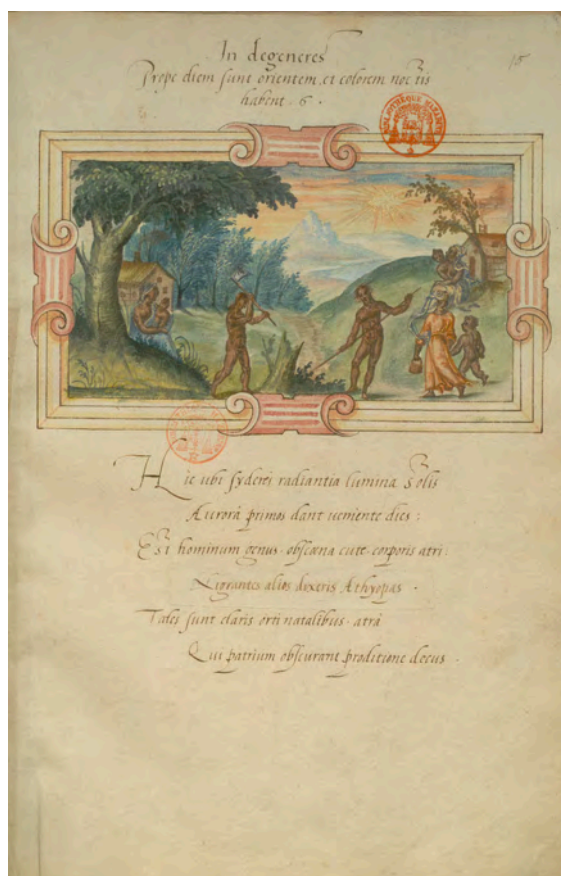 In degeneres
15
Prope diem sunt orientem, et colorem noctis
habent . 6 .
BIBLIOTHEQUE MAZARINE
Hic ubi syderei radiantia lumina Solis
Aurorâ primos dant ueniente dies :
Est hominum genus obscœna cute corporis atri :
Nigrantes alios dixeris Æthyopas .
Tales sunt claris orti natalibus, atrâ
Qui patrium obscurant proditione decus .